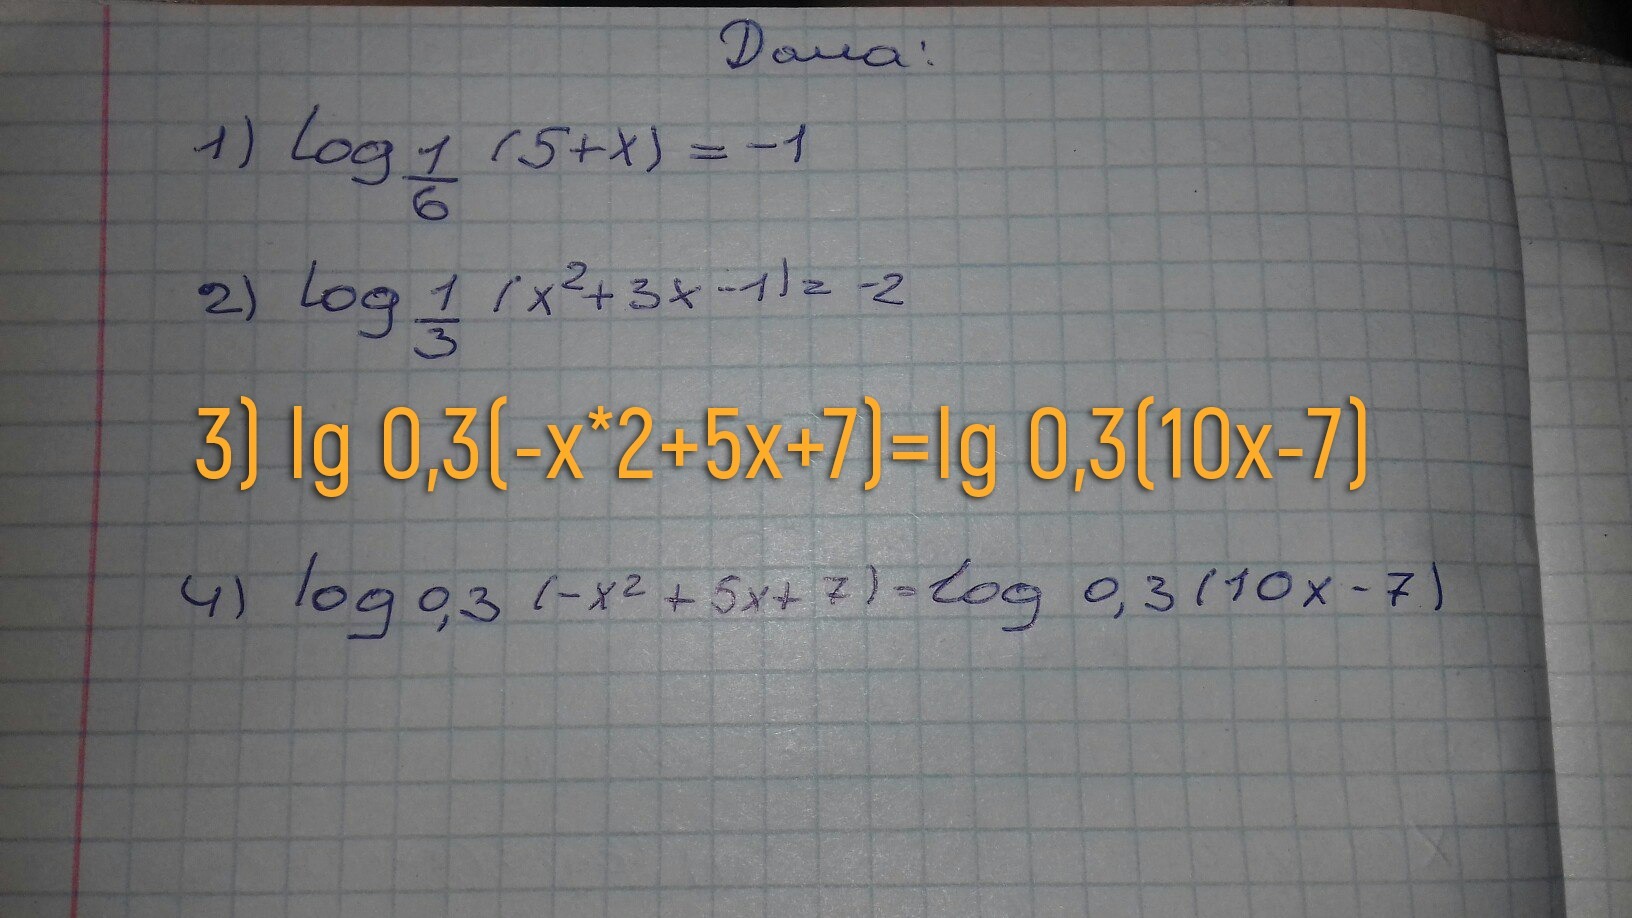 Дома:
1) log 1/6 (5+x) = -1
2) log 1/3 (x²+3x-1) = -2
3) lg 0,3(-x*2+5x+7)=lg 0,3(10x-7)
4) log 0,3 (-x²+5x+7)=log 0,3(10x-7)